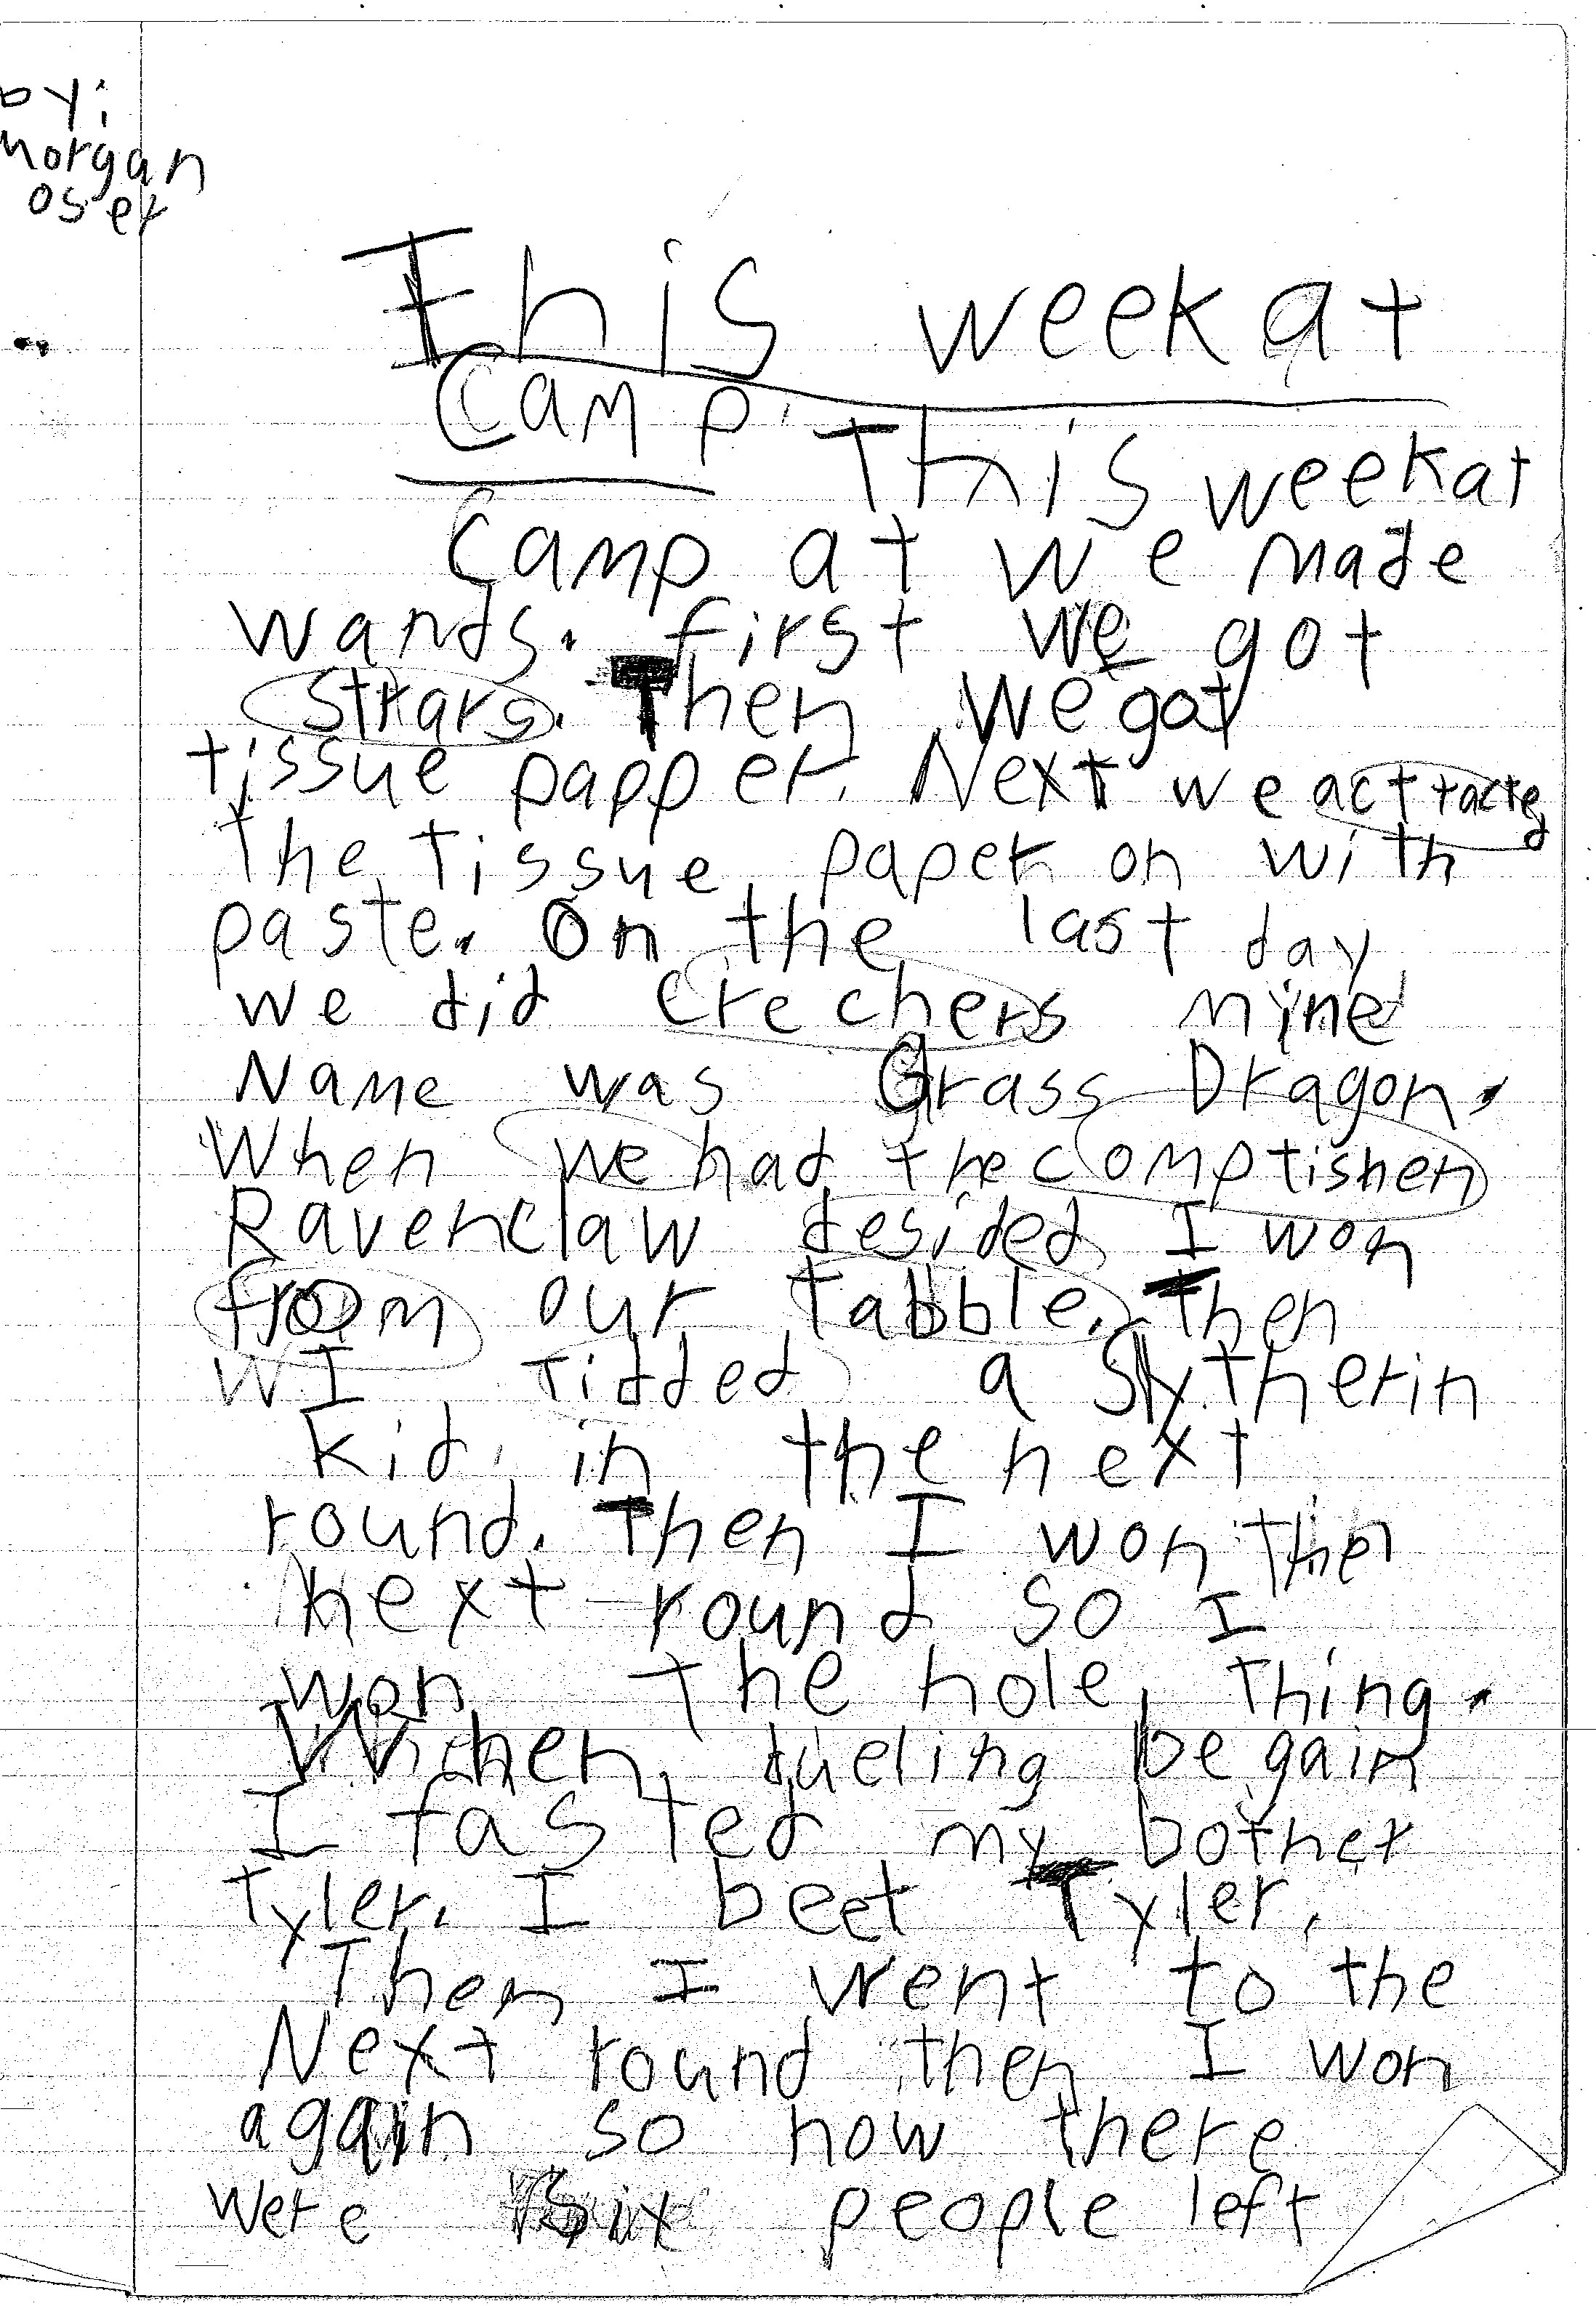 by:
Morgan
oser
This week at
Camp.
This week at
Camp at we made
wands. first we got
strars. Then we got
tissue papper. Next we acttacte
the tissue paper on with
paste. On the last day
we did crechers mine
Name was Grass Dragon.
When we had the comptishen
Ravenclaw desided I won
from our tabble. Then
I tidded a Slytherin
kid in the next
round. Then I won the
next round so I
won the hole thing.
When dueling begain
I fasted my bother
Tyler. I beet Tyler.
Then I went to the
Next round then I won
again so now there
were six people left